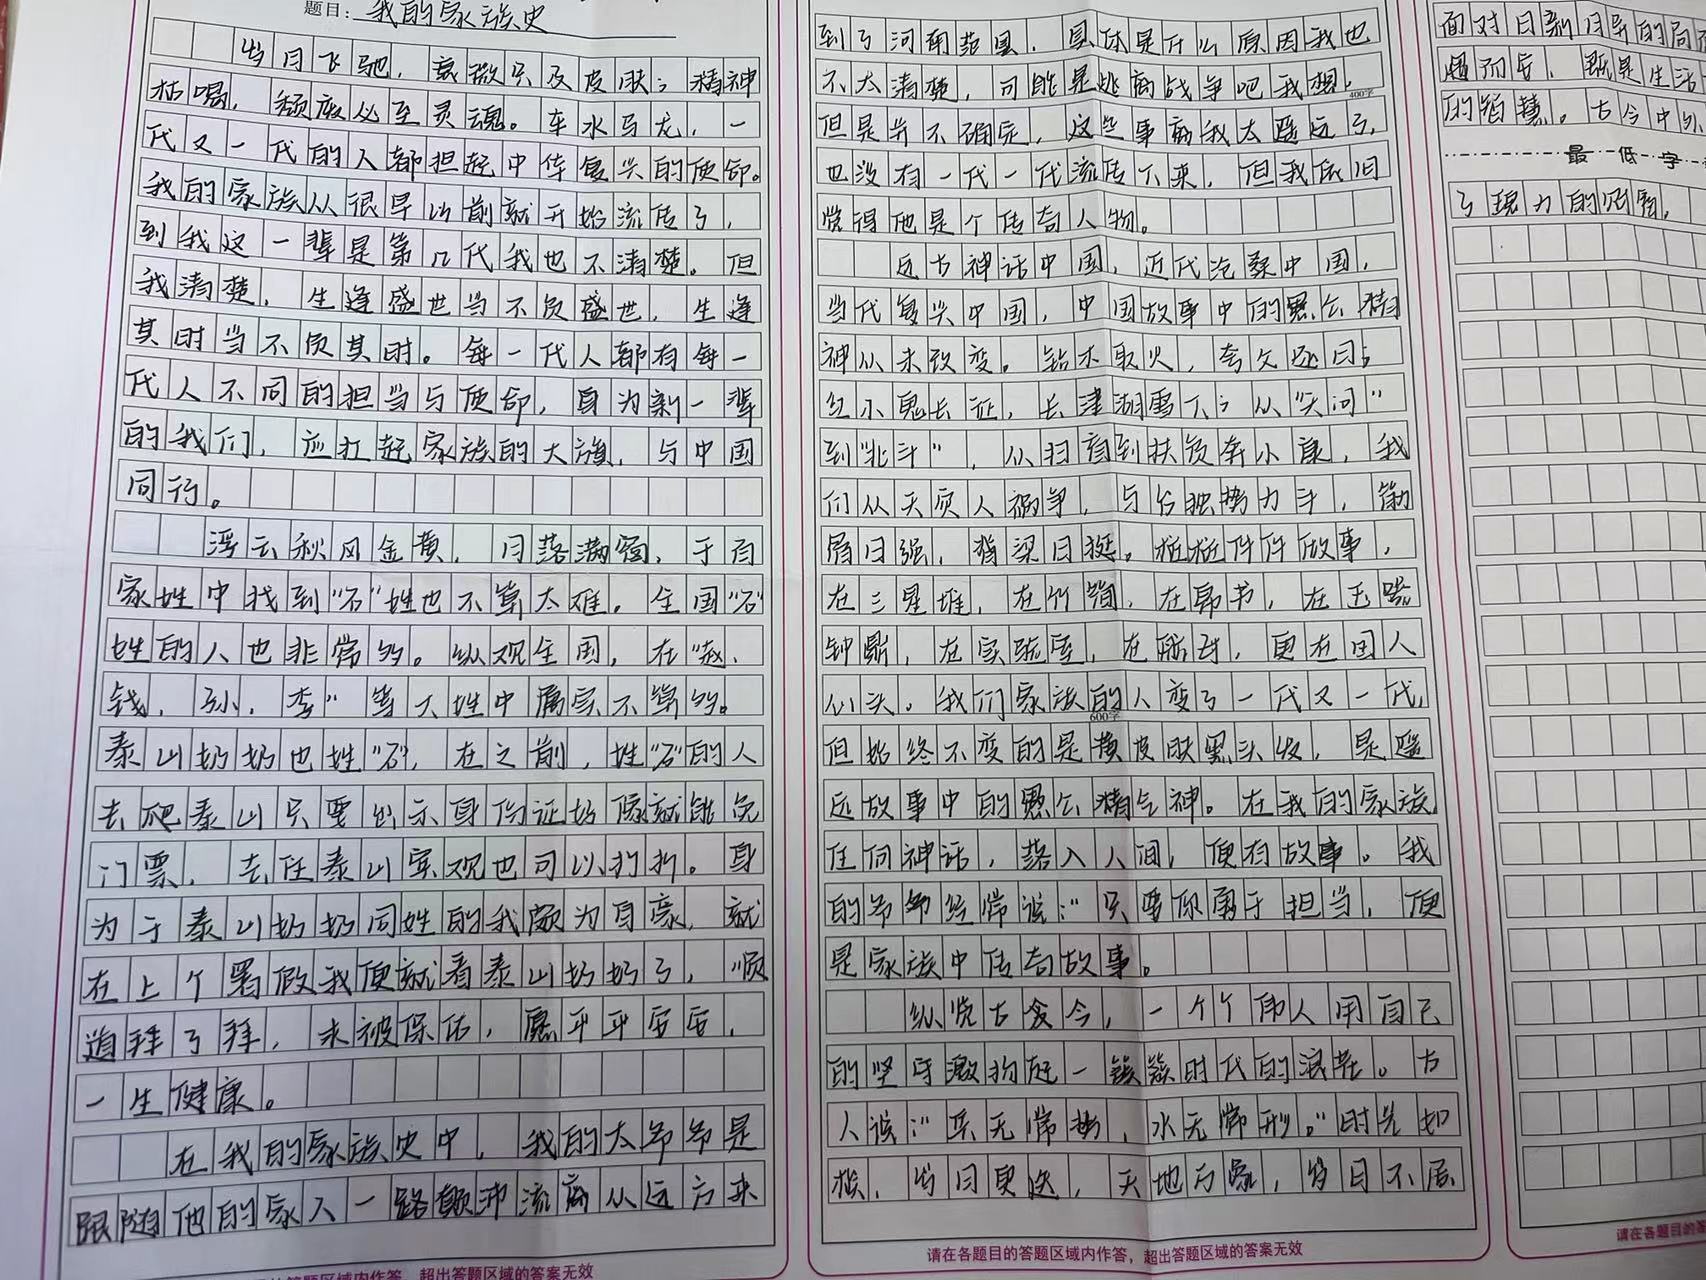 题目：我的家族史
岁月飞驰，衰微只及皮肤；精神
枯竭，颓废必至灵魂。车水马龙，一
代又一代的人都担起中华复兴的使命。
我的家族从很早以前就开始流传了，
到我这一辈是第几代我也不清楚。但
我清楚，生逢盛世当不负盛世，生逢
其时当不负其时。每一代人都有每一
代人不同的担当与使命，身为新一辈
的我们，应扛起家族的大旗，与中国
同行。
浮云秋风金黄，月落满窗，于百
家姓中找到“石”姓也不算太难。全国“石”
姓的人也非常多。纵观全国，在“赵、
钱、孙、李”等大姓中属实不算多。
泰山奶奶也姓“石”，在之前，姓“石”的人
去爬泰山只要出示身份证好像就能免
门票，去任泰山宾观也可以打折。身
为于泰山奶奶同姓的我颇为自豪，就
在上个署假我便就看泰山奶奶了，顺
道拜了拜，来被保佑，愿平平安安，
一生健康。
在我的家族史中，我的太爷爷是
跟随他的家人一路颠沛流离从远方来
到了河南范县，具体是什么原因我也
不太清楚，可能是逃离战争吧我想，
400字
但是并不确定，这些事离我太遥远了，
也没有一代一代流传下来，但我依旧
觉得他是个传奇人物。
远古神话中国，近代沧桑中国，
当代复兴中国，中国故事中的愚公精
神从未改变。钻木取火，夸父逐日；
红小鬼长征，长津湖雪下；从“天问”
到“北斗”，从扫盲到扶贫奔小康，我
们从天灾人祸争，与台独势力斗，筋
骨日强，脊梁日挺。桩桩件件故事，
在三星堆，在竹简，在帛书，在玉璐
钟鼎，在实验室，在脉动，更在国人
心头。我们家族的人变了一代又一代，
600字
但始终不变的是黄皮肤黑头发，是遥
远故事中的愚公精气神。在我的家族
任何神话，落入人间，便有故事。我
的爷爷经常说：“只要你勇于担当，便
是家族中传奇故事。
纵览古今，一个个伟人用自己
的坚守激扬起一簇簇时代的浪花。古
人说：“兵无常势，水无常形。”时光如
梭，岁月更迭，天地万象，岁月不居
面对日新月异的局
遇而安，既是生活
的智慧。古今中外
最低字
了现力的闭窗，
请在各题目的答题区域内作答，超出答题区域的答案无效
答题区域内作答，超出答题区域的答案无效
请在各题目的答